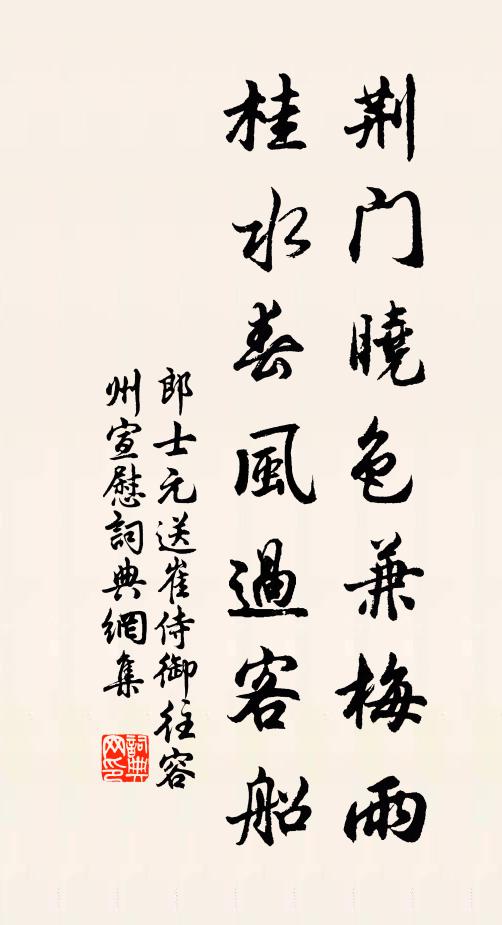 荆门曉色兼梅雨
桂水春風過客船
郎士元送崔侍御往容
州宣慰詞典網集
詞典
网印